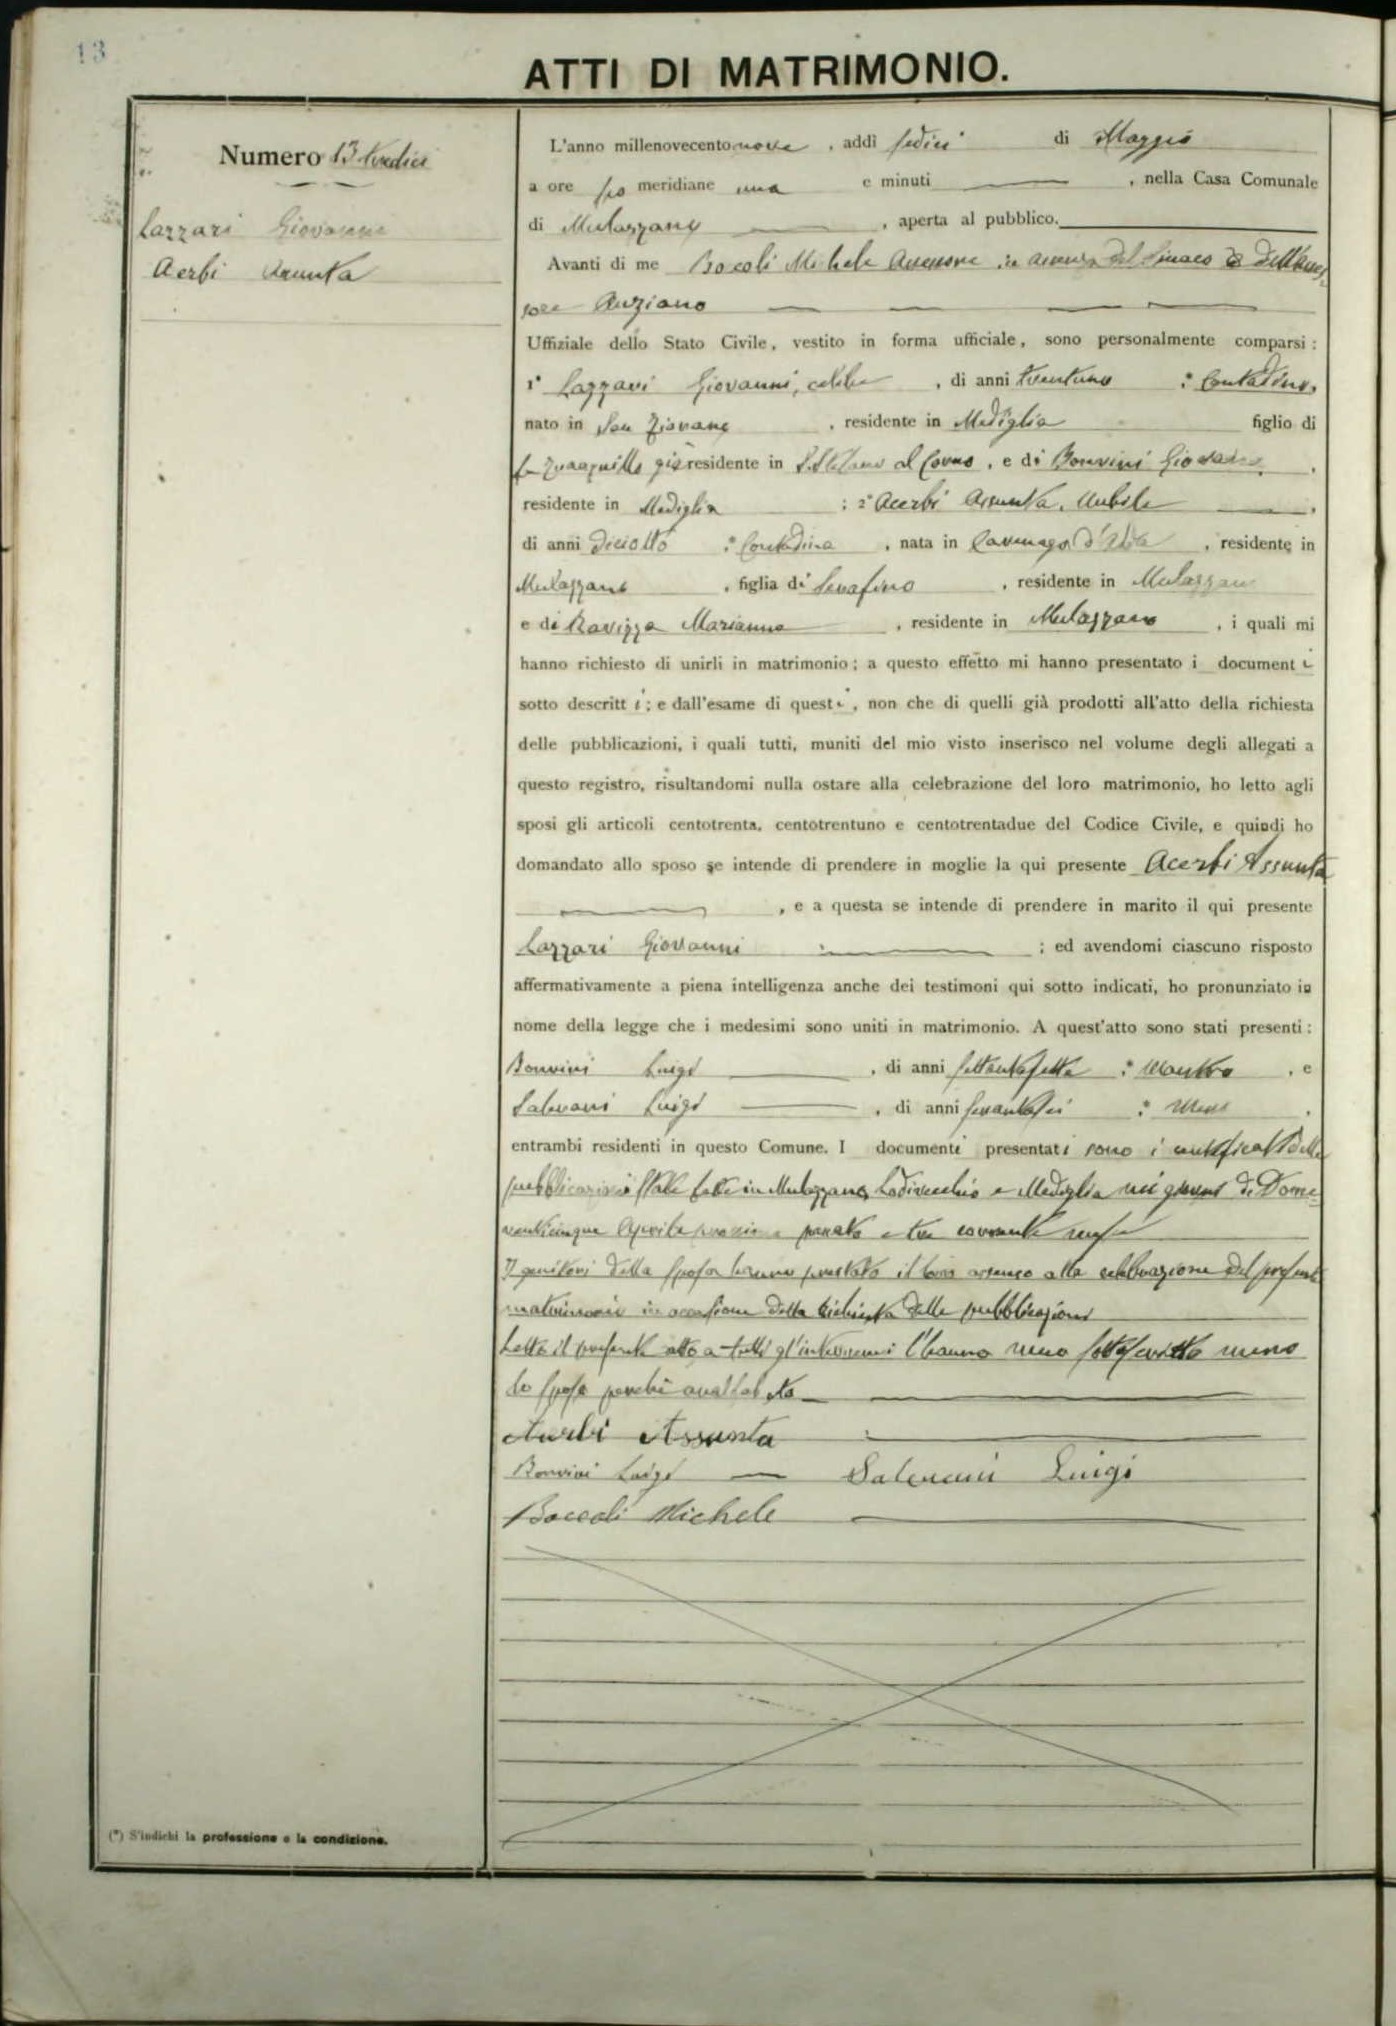 13
ATTI DI MATRIMONIO.
Numero 13 tredici
Lazzari Giovanni
Acerbi Assunta
L'anno millenovecento nove, addì sedici di Maggio
a ore po meridiane una e minuti , nella Casa Comunale
di Mulazzano , aperta al pubblico.
Avanti di me Boccoli Michele Assessore in assenza del Sindaco e dell'asses-
sore Anziano
Uffiziale dello Stato Civile, vestito in forma ufficiale, sono personalmente comparsi:
1° Lazzari Giovanni, celibe, di anni trentuno :* Contadino,
nato in San Zenone, residente in Mediglia figlio di
fu già residente in S. Stefano al Corno, e di Bonvini Giovanna,
residente in Mediglia; 2° Acerbi Assunta, Nubile,
di anni diciotto :* Contadina, nata in Cavenago d'Adda, residente in
Mulazzano, figlia di Serafino, residente in Mulazzano
e di Ravizza Marianna, residente in Mulazzano, i quali mi
hanno richiesto di unirli in matrimonio; a questo effetto mi hanno presentato i documenti
sotto descritti; e dall'esame di questi, non che di quelli già prodotti all'atto della richiesta
delle pubblicazioni, i quali tutti, muniti del mio visto inserisco nel volume degli allegati a
questo registro, risultandomi nulla ostare alla celebrazione del loro matrimonio, ho letto agli
sposi gli articoli centotrenta, centotrentuno e centotrentadue del Codice Civile, e quindi ho
domandato allo sposo se intende di prendere in moglie la qui presente Acerbi Assunta
, e a questa se intende di prendere in marito il qui presente
Lazzari Giovanni ; ed avendomi ciascuno risposto
affermativamente a piena intelligenza anche dei testimoni qui sotto indicati, ho pronunziato in
nome della legge che i medesimi sono uniti in matrimonio. A quest'atto sono stati presenti:
Bonvini Luigi, di anni settantasette :* , e
Salerani Luigi, di anni :* .
entrambi residenti in questo Comune. I documenti presentati sono i certificati delle
pubblicazioni state fatte in Mulazzano, Lodivecchio e Mediglia nei giorni di Dome-
venticinque Aprile prossimo passato e tre corrente
I genitori della sposa hanno prestato il loro assenso alla celebrazione del presente
matrimonio in occasione della richiesta delle pubblicazioni
Letto il presente atto a tutti gl'intervenuti l'hanno meco sottoscritto meno
lo sposo perchè analfabeta
Acerbi Assunta
Bonvini Luigi Salerani Luigi
Boccoli Michele
(*) S'indichi la professione o la condizione.